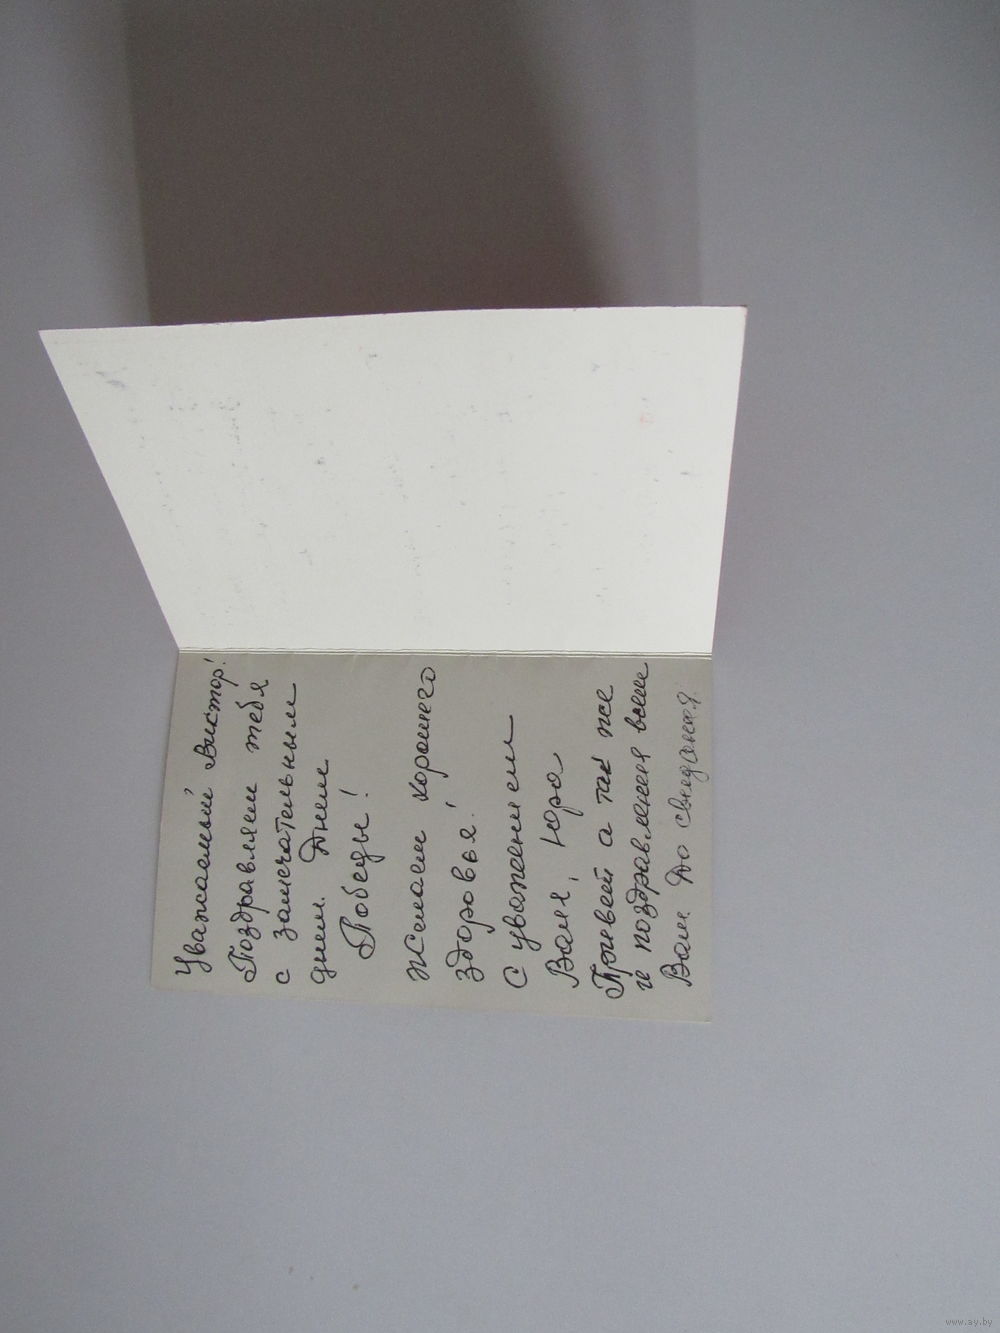 Уважаемый Виктор!
Поздравляем тебя
с замечательным
днем. Днем
Победы!
Желаем хорошего
здоровья!
С уважением
Валя, Юра
Привет а так же
и поздравления всем
Вам. До свидания.
www.ay.by